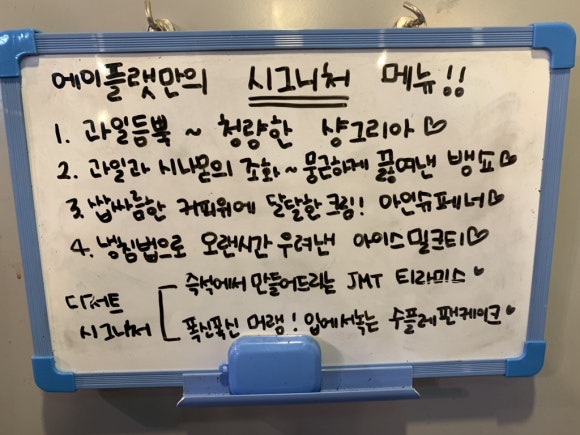 에이플랫만의 시그니처 메뉴!!
1. 과일듬뿍 ~ 청량한 샹그리아♡
2. 과일과 시나몬의 조화~ 뭉근하게 끓여낸 뱅쇼♡
3. 쌉싸름한 커피위에 달달한 크림! 아인슈페너♡
4. 냉침법으로 오랜시간 우려낸 아이스밀크티♡
디저트 시그니처
즉석에서 만들어드리는 JMT 티라미스♥
폭신폭신 머랭! 입에서녹는 수플레팬케이크♥